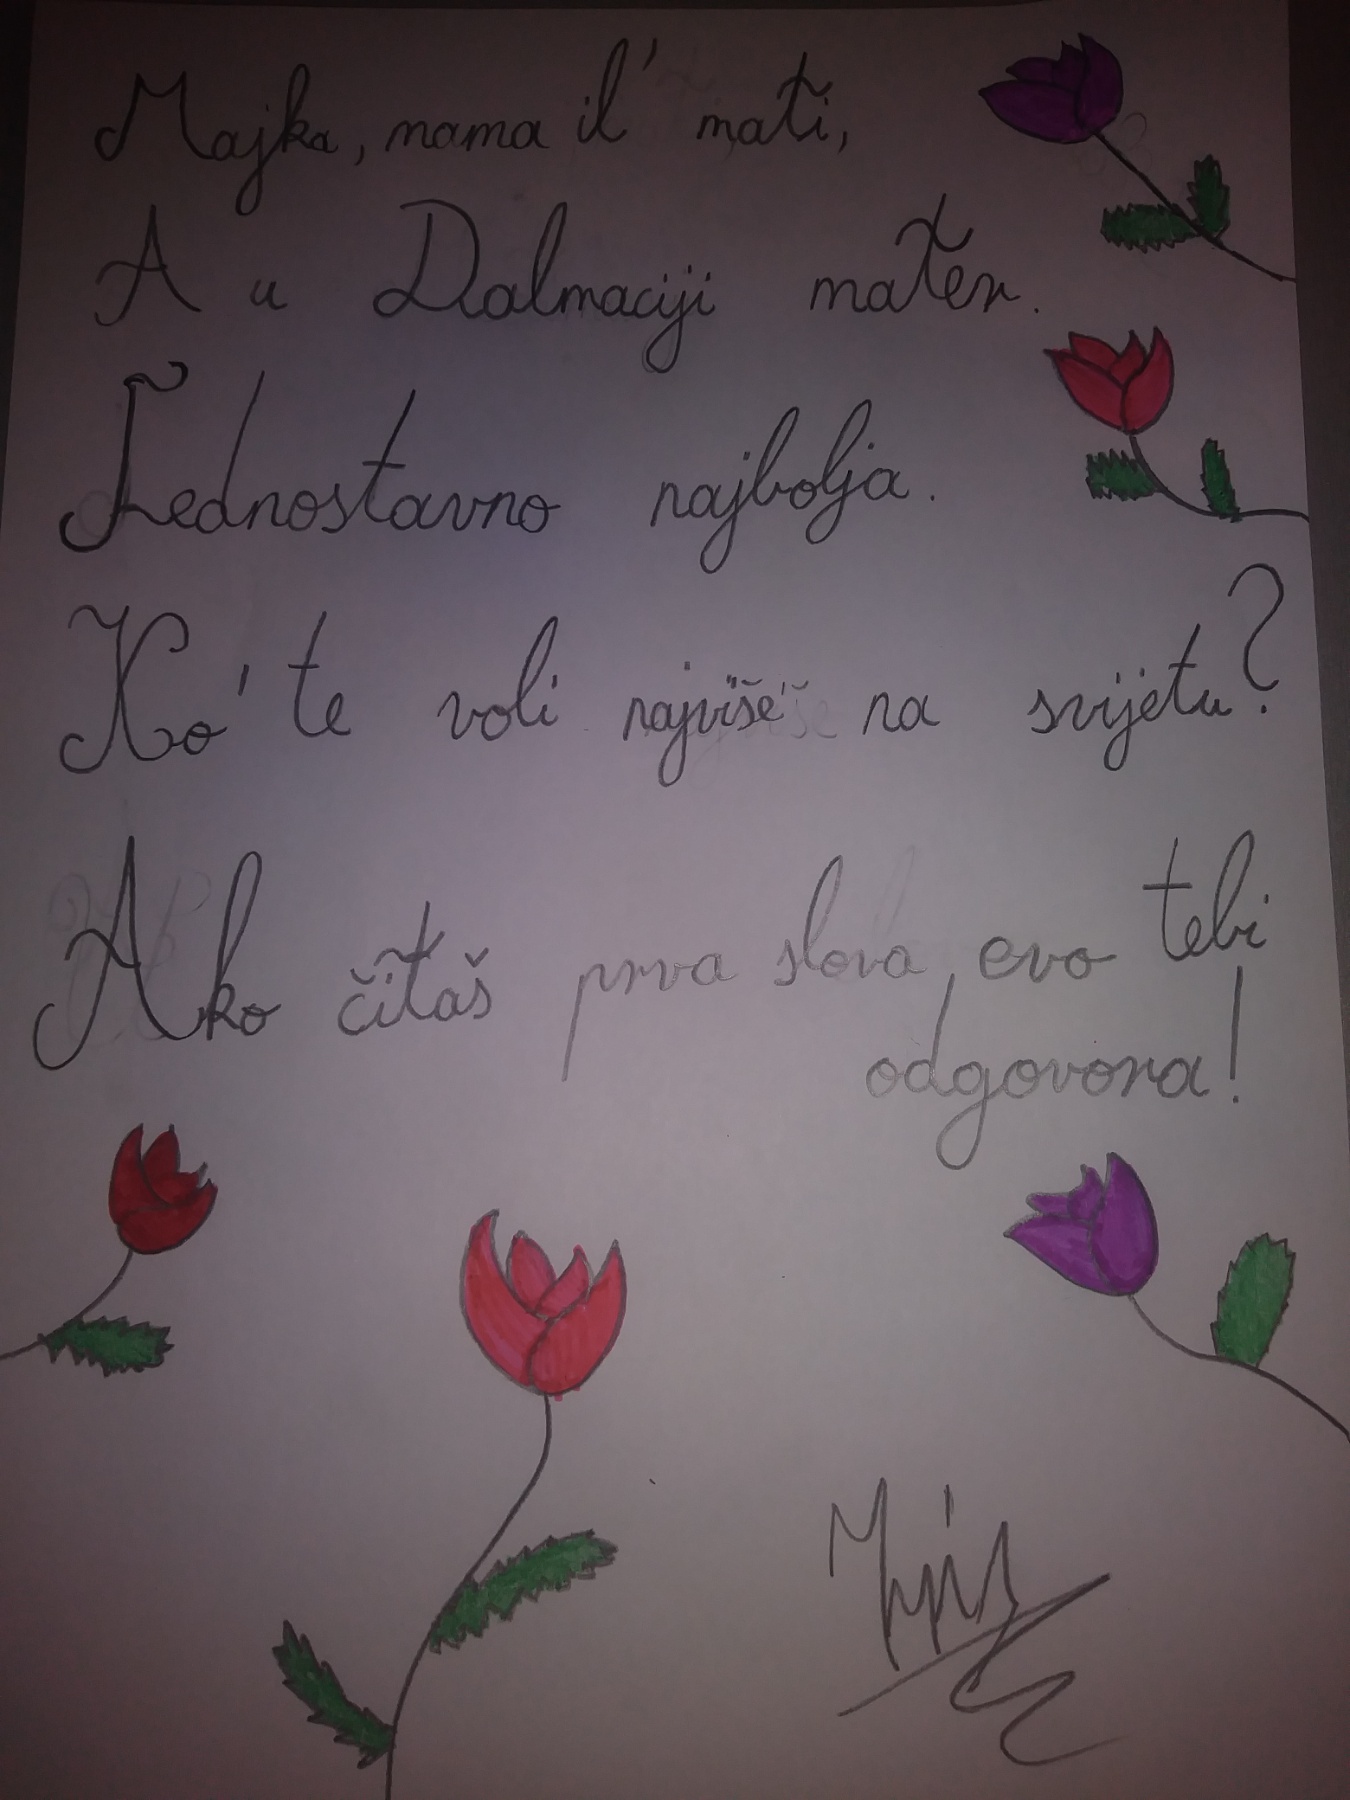 Majka, mama il' mati,
A u Dalmaciji mater.
Jednostavno najbolja.
Ko' te voli najviše na svijetu?
Ako čitaš prva slova, evo tebi
odgovora!